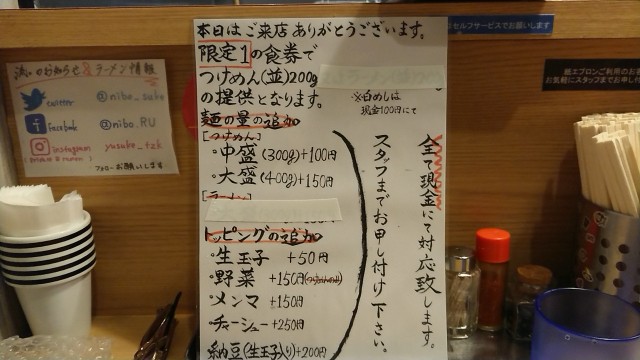 本日はご来店ありがとうございます。
限定1の食券で
つけめん(並)200g
の提供となります。
※白めしは
現金100円にて
麺の量の追加
[つけめん]
・中盛(300g)+100円
・大盛(400g)+150円
トッピングの追加
・生玉子 +50円
・野菜 +150円(つけめんのみ)
・メンマ +150円
・チャーシュー +250円
納豆(生玉子入り)+200円
全て現金にて対応致します。
スタッフまでお申し付け下さい。
のお知らせ&ラーメン情報
twitter @nibo_suke
facebook @nibo.RU
Instagram yusuke_tzk
フォローお願いします
セルフサービスでお願いします
紙エプロンご利用のお客
お気軽にスタッフまでお申し